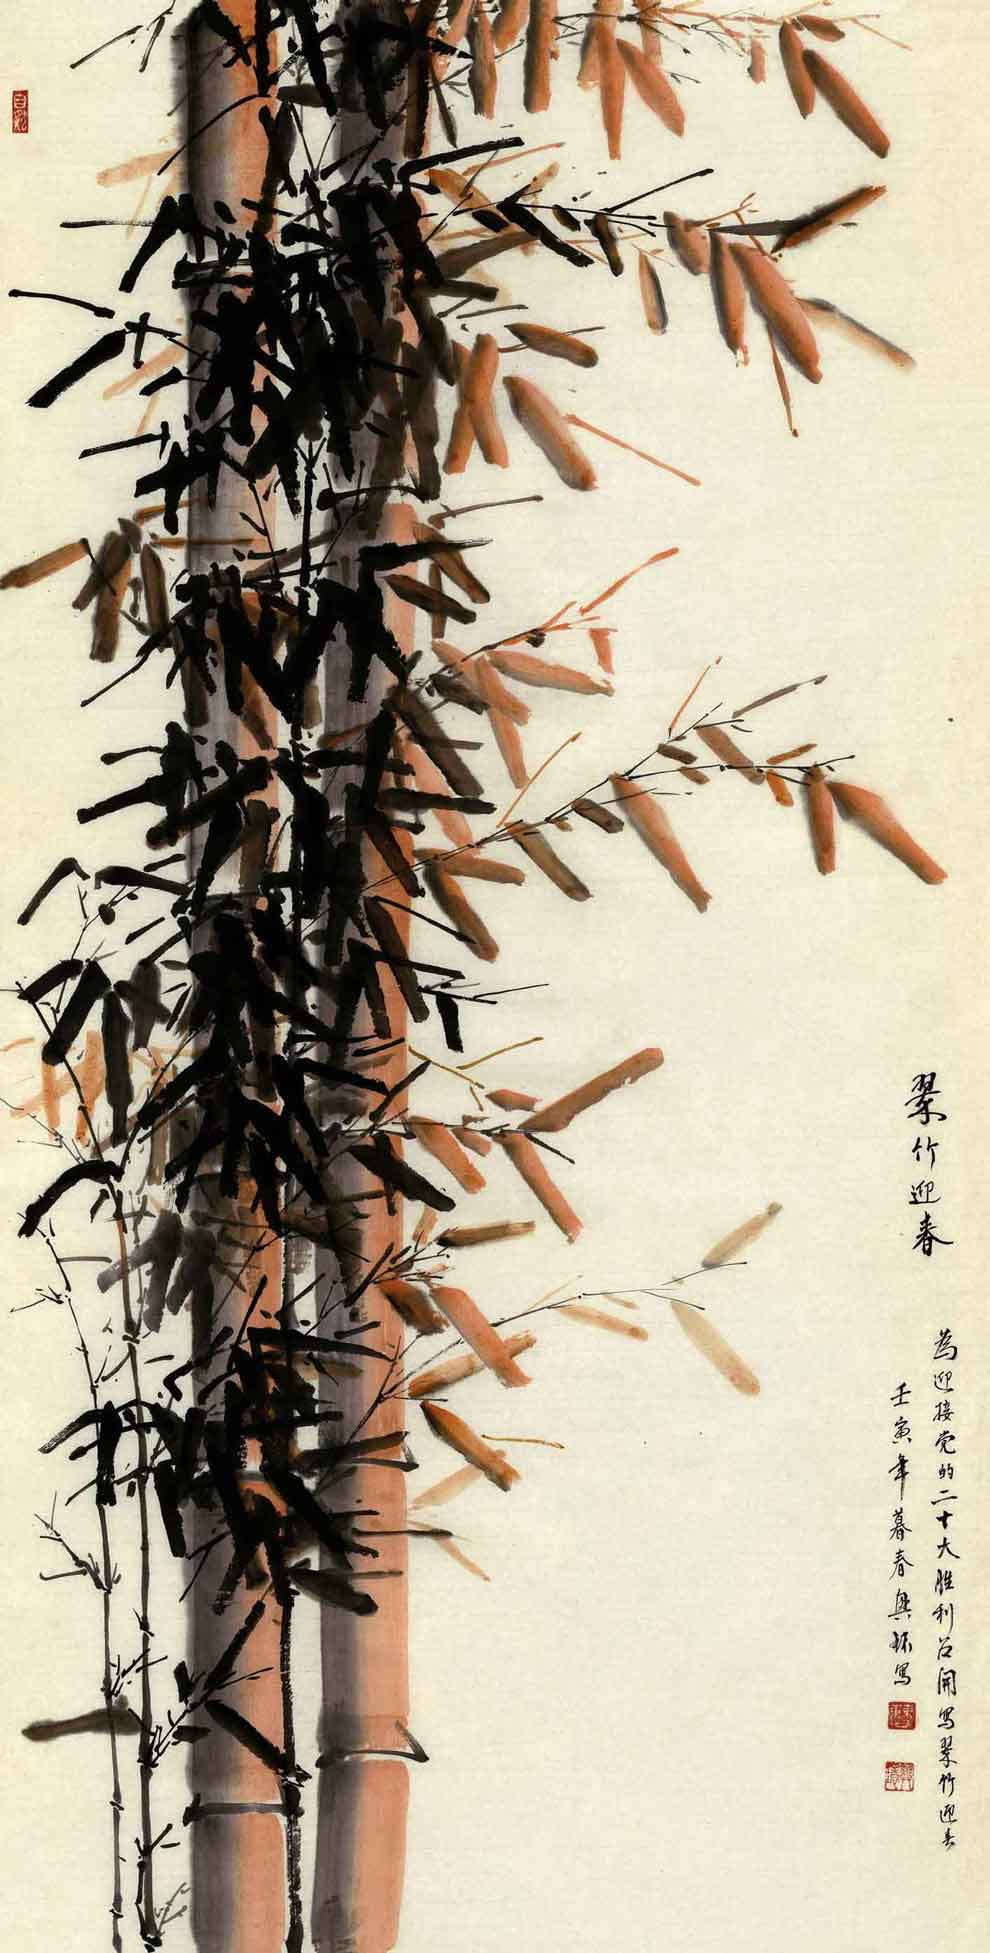 翠竹迎春
为迎接党的二十大胜利召開写翠竹迎春
壬寅年暮春興环写